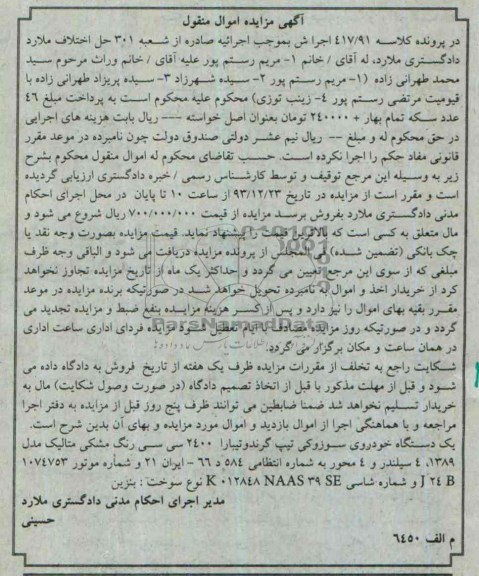 آگهی مزایده اموال منقول
در پرونده کلاسه ٤١٧/٩١ اجرا ش بموجب اجرائیه صادره از شعبه ٣٠١ حل اختلاف ملارد
دادگستری ملارد، له آقای / خانم ١- مریم رستم پور علیه آقای / خانم وراث مرحوم سید
محمد طهرانی زاده (١- مریم رستم پور ٢- سیده شهرزاد ٣- سیده پریزاد طهرانی زاده با
قیومیت مرتضی رستم پور ٤- زینب توزی) محکوم علیه محکوم است به پرداخت مبلغ ٤٦
عدد سکه تمام بهار + ٢٤٠٠٠٠ تومان بعنوان اصل خواسته --- ریال بابت هزینه های اجرایی
در حق محکوم له و مبلغ -- ریال نیم عشر دولتی صندوق دولت چون نامبرده در موعد مقرر
قانونی مفاد حکم را اجرا نکرده است. حسب تقاضای محکوم له اموال منقول محکوم بشرح
زیر به وسیله این مرجع توقیف و توسط کارشناس رسمی / خبره دادگستری ارزیابی گردیده
است و مقرر است از مزایده در تاریخ ٩٣/١٢/٢٣ از ساعت ١٠ تا پایان در محل اجرای احکام
مدنی دادگستری ملارد بفروش برسد مزایده از قیمت ٧٠٠/٠٠٠/٠٠٠ ریال شروع می شود و
مال متعلق به کسی است که بالاترین قیمت را پیشنهاد نماید. قیمت مزایده بصورت وجه نقد یا
چک بانکی (تضمین شده) فی المجلس از برنده مزایده دریافت می شود و الباقی وجه ظرف
مبلغی که از سوی این مرجع تعیین می گردد و حداکثر یک ماه از تاریخ مزایده تجاوز نخواهد
کرد از خریدار اخذ و اموال به نامبرده تحویل خواهد شد در صورتیکه برنده مزایده در موعد
مقرر بقیه بهای اموال را نیز دارد و پس از کسر هزینه مزایده بنفع ضبط و مزایده تجدید می
گردد و در صورتیکه روز مزایده مصادف با ایام تعطیل شود مزایده فردای اداری ساعت اداری
در همان ساعت و مکان برگزار می گردد.
شکایت راجع به تخلف از مقررات مزایده ظرف یک هفته از تاریخ فروش به دادگاه داده می
شود و قبل از مهلت مذکور با قبل از اتخاذ تصمیم دادگاه (در صورت وصول شکایت) مال به
خریدار تسلیم نخواهد شد ضمنا ضابطین می توانند ظرف پنج روز قبل از مزایده به دفتر اجرا
مراجعه و با هماهنگی اجرا از اموال بازدید و اموال مورد مزایده و بهای آن بدین شرح است.
یک دستگاه خودروی سوزوکی تیپ گرندویتیارا ٢٤٠٠ سی سی رنگ مشکی متالیک مدل
١٣٨٩، ٤ سیلندر و ٤ محور به شماره انتظامی ٥٨٤ د ٦٦ - ایران ٢١ و شماره موتور ١٠٧٤٧٥٣
J ٢٤ B و شماره شاسی K ٠١٢٨٤٨ NAAS ٣٩ SE نوع سوخت : بنزین
مدیر اجرای احکام مدنی دادگستری ملارد
حسینی
م الف ٦٤٥٠